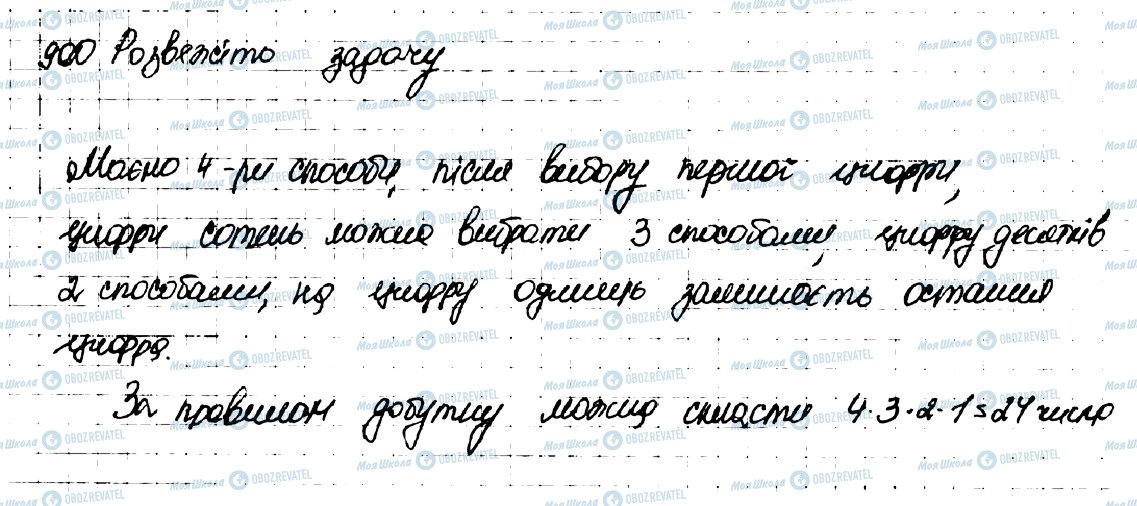 900 Розвежіть задачу
Маємо 4-ри способи, після вибору першої цифри,
цифри сотень можна вибрати 3 способами, цифру десятків
2 способами, на цифру одиниць залишаєть остання
цифра.
За правилом добутку можна скласти 4·3·2·1=24 числа